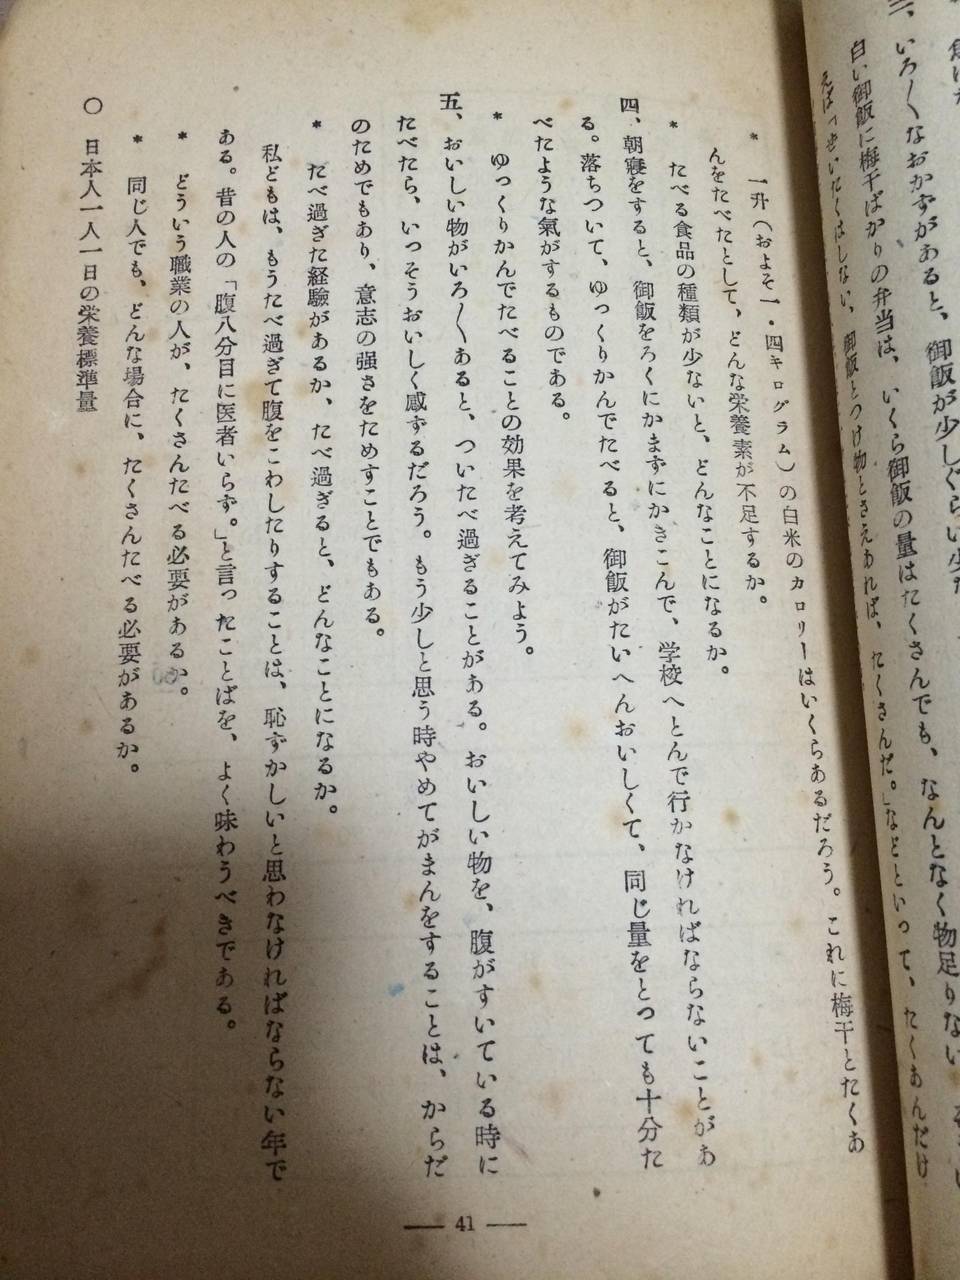 三、いろ〱なおかずがあると、御飯が少しぐらい少
白い御飯に梅干ばかりの弁当は、いくら御飯の量はたくさんでも、なんとなく物足りない。
えば「ぜいたくはしない、御飯とつけ物とさえあれば、たくさんだ。」などといって、たくあんだけ
* 一升(およそ一・四キログラム)の白米のカロリーはいくらあるだろう。これに梅干とたくあ
んをたべたとして、どんな栄養素が不足するか。
* たべる食品の種類が少ないと、どんなことになるか。
四、朝寝をすると、御飯をろくにかまずにかきこんで、学校へとんで行かなければならないことがあ
る。落ちついて、ゆっくりかんでたべると、御飯がたいへんおいしくて、同じ量をとっても十分た
べたような氣がするものである。
* ゆっくりかんでたべることの効果を考えてみよう。
五、おいしい物がいろ〱あると、ついたべ過ぎることがある。おいしい物を、腹がすいている時に
たべたら、いっそうおいしく感ずるだろう。もう少しと思う時やめてがまんをすることは、からだ
のためでもあり、意志の强さをためすことでもある。
* たべ過ぎた経驗があるか、たべ過ぎると、どんなことになるか。
私どもは、もうたべ過ぎて腹をこわしたりすることは、恥ずかしいと思わなければならない年で
ある。昔の人の「腹八分目に医者いらず。」と言ったことばを、よく味わうべきである。
* どういう職業の人が、たくさんたべる必要があるか。
* 同じ人でも、どんな場合に、たくさんたべる必要があるか。
○ 日本人一人一日の栄養標準量
— 41 —